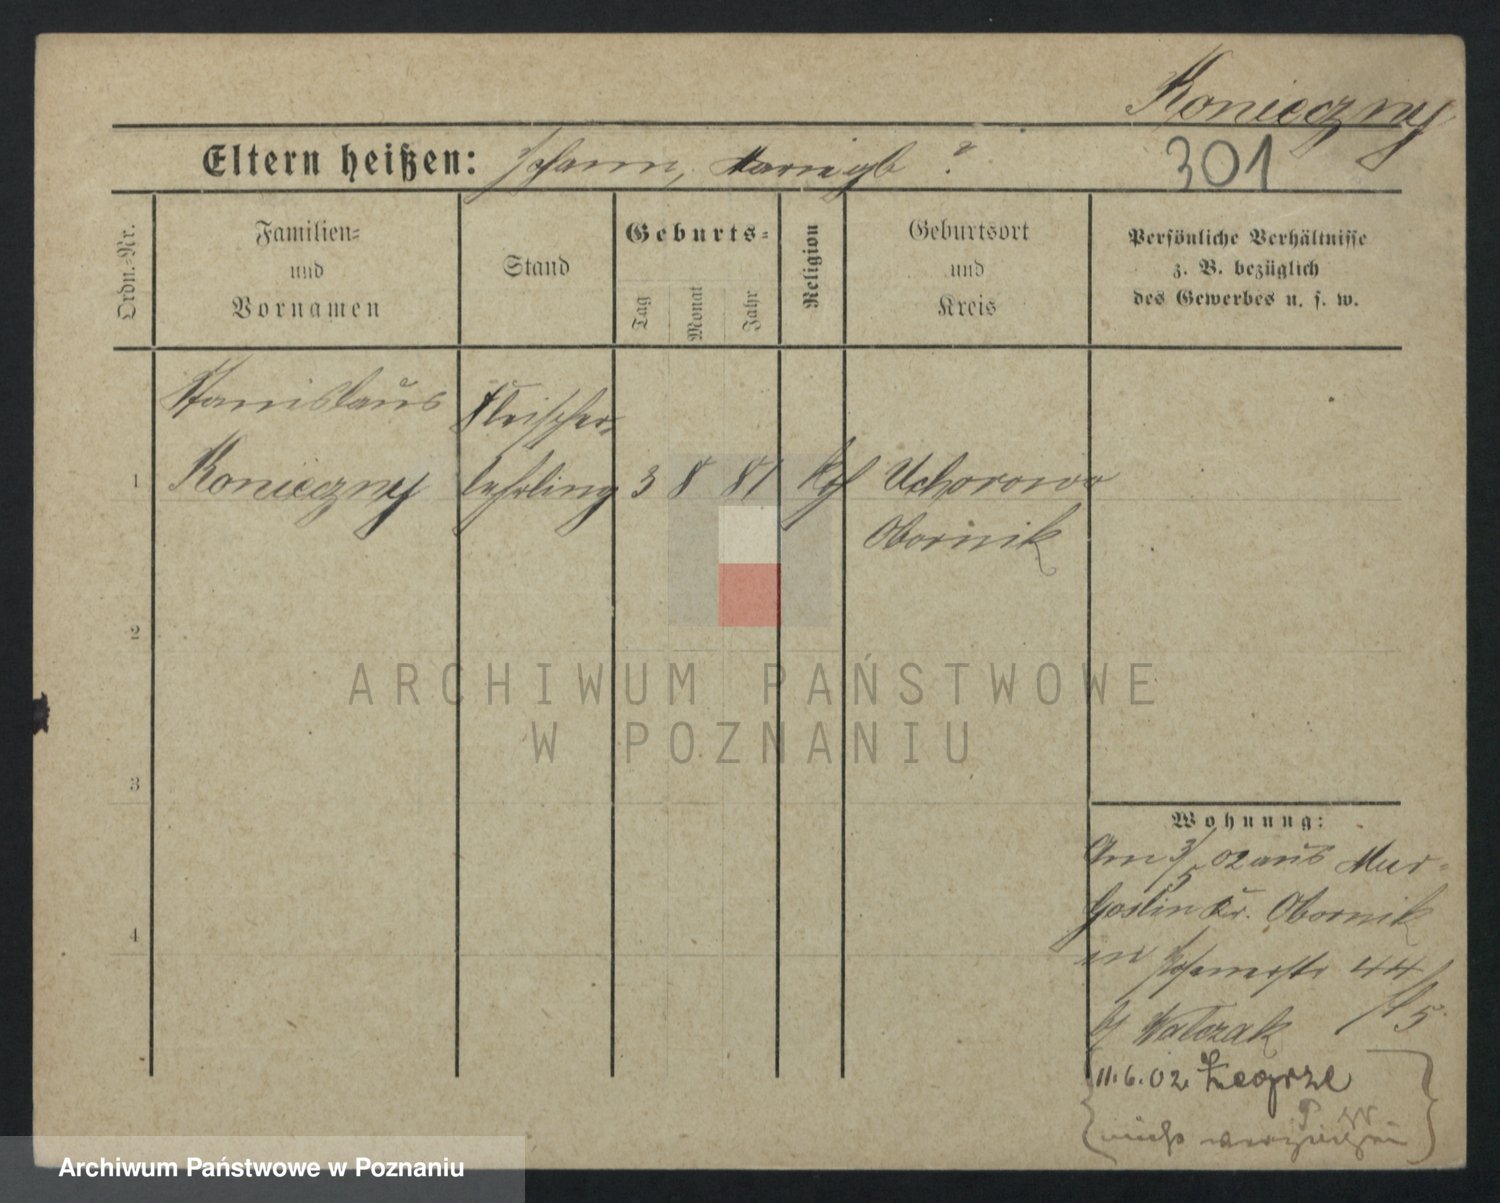 Konieczny
Eltern heißen: Johann, Maria gb ?
301
Ordn.-Nr.
Familien-
und
Vornamen
Stand
Geburts-
Tag
Monat
Jahr
Religion
Geburtsort
und
Kreis
Persönliche Verhältnisse
z. B. bezüglich
des Gewerbes u. s. w.
Stanislaus
Fleischer-
1 Konieczny lehrling 3 8 81 Kth Uchorowo
Obornik
2
ARCHIWUM PAŃSTWOWE
W POZNANIU
3
Wohnung:
Am 3/5 02 aus Mur-
Goslin Kr. Obornik
4
in 44
b/ Walczak /5
11.6.02. Zegrze
nicht verzogen
Archiwum Państwowe w Poznaniu